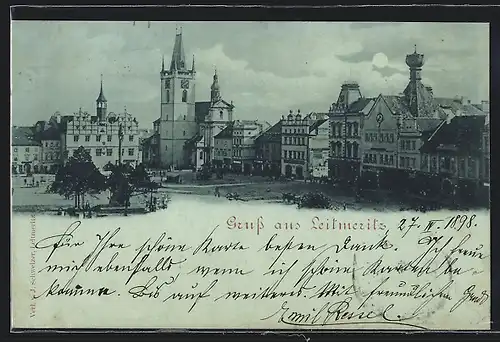 Gruß aus Leitmeritz, 27. IV. 1898.
Für Ihre schöne Karte besten Dank. Ich freue
mich ebenfalls wenn ich schöne Karten be-
komme. Bis auf weiteres. Mit freundlichem Gruß
Emil
Verl. v. J. Schwelzer, Leitmeritz.